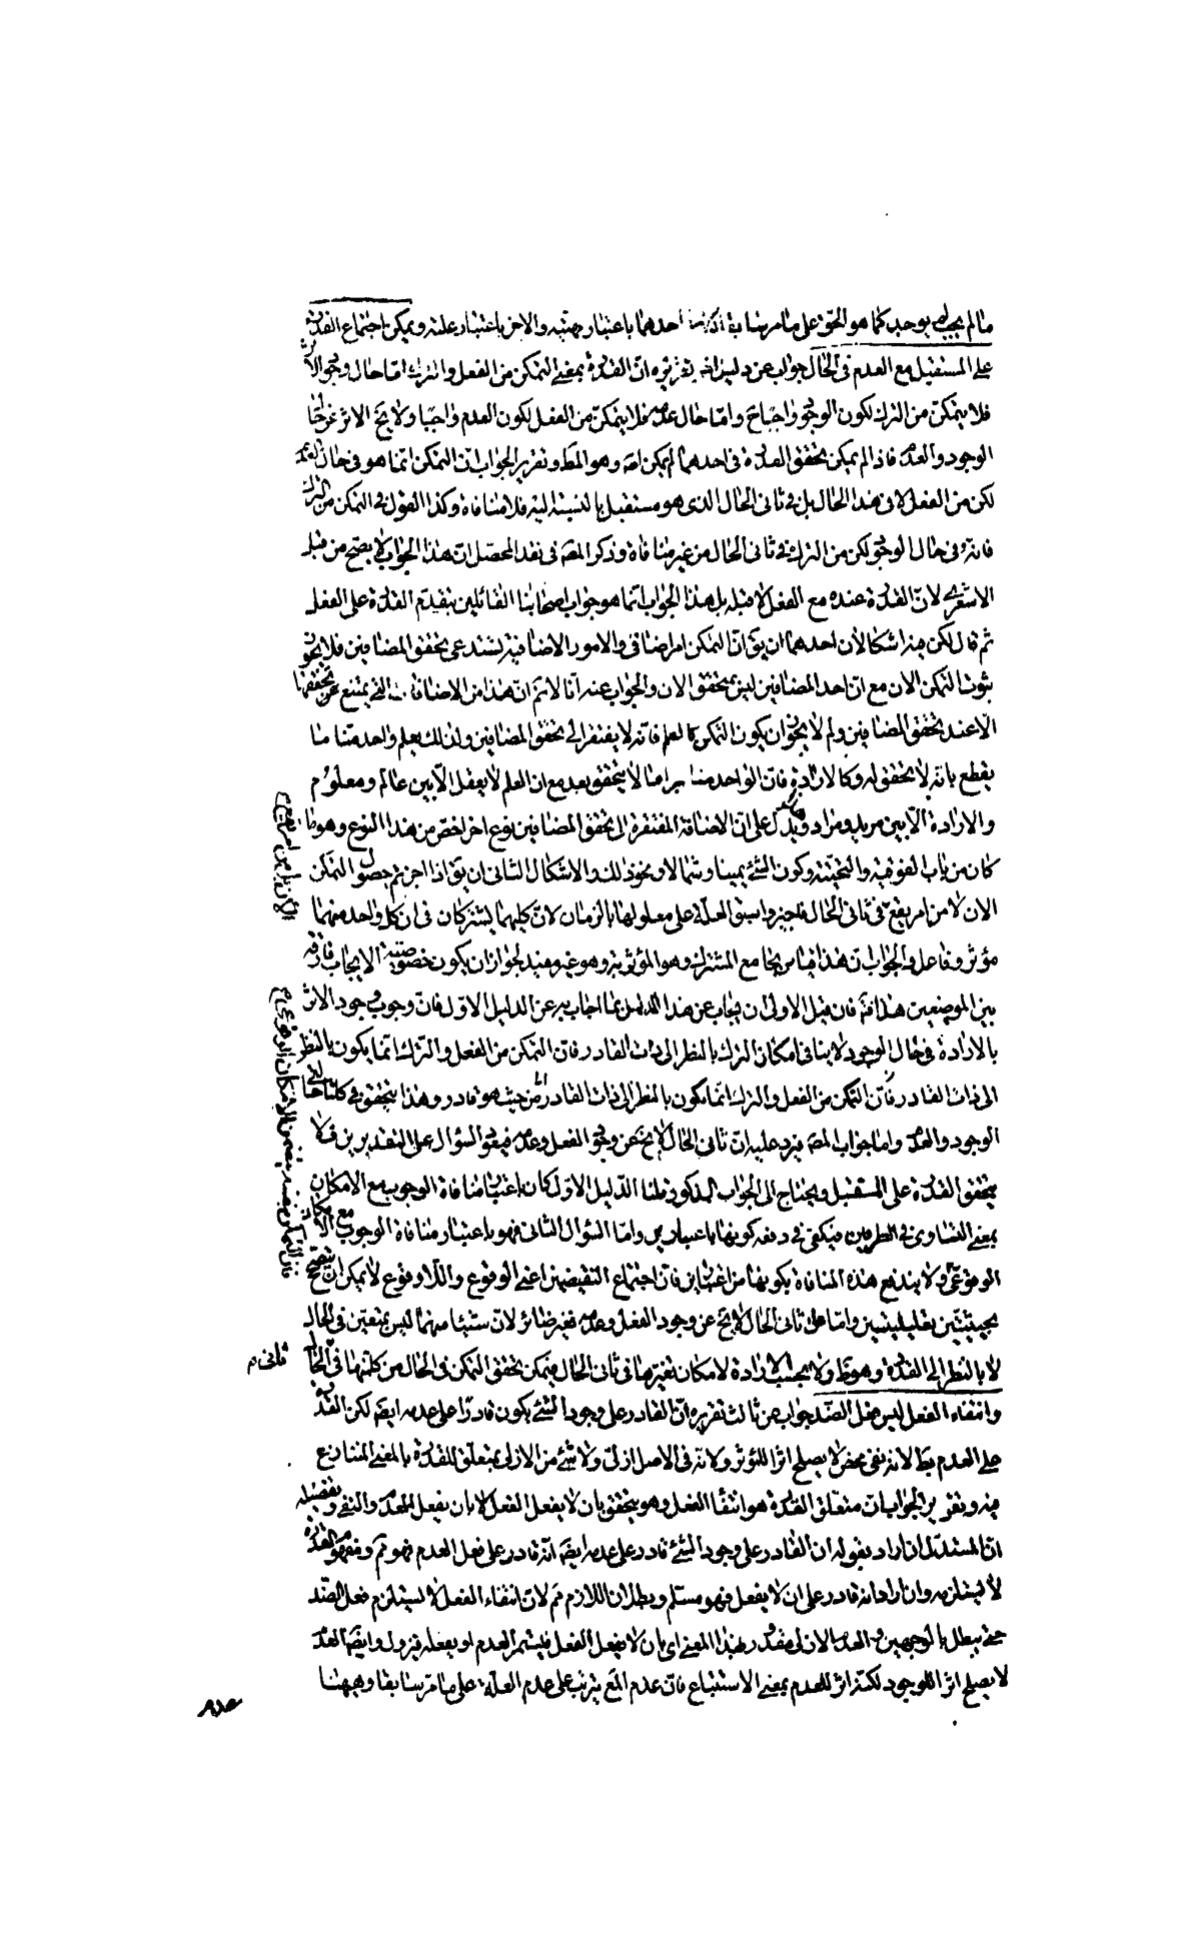 ما لم يجب لم يوجد كما هو الحق على ما مر سابقا احدهما باعتبار مهيته والاخر باعتبار علته ويمكن اجتماع القدرة
على المستقبل مع العدم فى الحال جواب عن دليل اخر تقريره ان القدرة بمعنى التمكن من الفعل والترك اما حال وجود الاثر
فلا يتمكن من الترك لكون الوجود واجبا ح واما حال عدمه فلا يتمكن من الفعل لكون العدم واجبا ولا يخ الاثر عن حالتى
الوجود والعدم فاذا لم يمكن تحقق القدرة فى احدهما لم يمكن اصه وهو المط وتقرير الجواب ان التمكن انما هو فى حال العدم
لكن من الفعل لا فى هذا الحال بل فى ثانى الحال الذى هو مستقبل بالنسبة اليه فلا منافاة وكذا القول فى التمكن من الترك
فانه فى حال الوجود لكن من الترك فى ثانى الحال من غير منافاة وذكر المصه فى نقد المحصل ان هذا الجواب لا يصح من قبل
الاشعرى لان القدرة عنده مع الفعل لا قبله بل هذا الجواب انما هو جواب اصحابنا القائلين بتقدم القدرة على الفعل
ثم قال لكن فيه اشكالان احدهما ان يق ان التمكن امر اضافى والامور الاضافية تستدعى تحقق المضافين فلا يجوز
ثبوت التمكن الان مع ان احد المضافين ليس بمتحقق الان والجواب عنه انا لا نم ان هذا من الاضافات التى يمتنع تحققها
الا عند تحقق المضافين ولم لا يجوز ان يكون التمكن كالعلم فانه لا يفتقر الى تحقق المضافين ولذلك يعلم واحد منا ما
يقطع بانه لا تحقق له وكالارادة فان الواحد منا يريد ما لا يتحقق بعد مع ان العلم لا يعقل الا بين عالم ومعلوم
والارادة الا بين مريد ومراد على ان الاضافة المفتقرة الى تحقق المضافين نوع اخر اخص من هذا النوع وهو ما
كان من باب الفوقية والتحتية وكون الشئ يمينا وشمالا ونحو ذلك والاشكال الثانى ان يق اذا اجزتم حصول التمكن
الان لامر يقع فى ثانى الحال فاجيزوا سبق العلة على معلولها بالزمان لان كليهما يشتركان فى ان كل واحد منهما
مؤثر وفاعل والجواب ان هذا قياس بجامع المشترك وهو المؤثرية وهو غير مفيد لجواز ان يكون خصوصية الايجاب فارقة
بين الموضعين هذا فان قيل الاولى ان يجاب عن هذا الدليل بما اجاب به عن الدليل الاول فان وجوب وجود الاثر
بالارادة فى حال الوجود لا ينافى امكان الترك بالنظر الى ذات القادر فان التمكن من الفعل والترك انما يكون بالنظر
الى ذات القادر فان التمكن من الفعل والترك انما يكون بالنظر الى ذات القادر من حيث هو قادر وهذا يتحقق فى كلتا حالتى
الوجود والعدم واما جواب المصه فيرد عليه ان ثانى الحال لا يخ عن وجود الفعل وعدمه فيعود السؤال على التقديرين فلا
يتحقق القدرة على المستقبل ويحتاج الى الجواب المذكور قلنا الدليل الاول كان باعتبار منافاة الوجوب مع الامكان
بمعنى التساوى فى الطرفين فيكفى فى دفعه كونهما باعتبارين واما السؤال الثانى فهو باعتبار منافاة الوجوب مع الامكان
الوقوعى ولا يندفع هذه المنافاة بكونهما من اعتبارين فان اجتماع النقيضين اعنى الوقوع واللاوقوع لا يمكن ان يتصحح
بحيثيتين تعليليتين واما على ثانى الحال لا يخ عن وجود الفعل وعدمه فغير ضائر لان شيئا منهما ليس بمتعين فى الحال
لا بالنظر الى القدرة وهو ظ ولا بحسب الارادة لامكان تغيرها فى ثانى الحال فيمكن تحقق التمكن فى الحال من كلتيهما فى ثانى الحال
وانتفاء الفعل ليس فعل الضد جواب عن ثالث تقريره ان القادر على وجود الشئ يكون قادرا على عدمه ايضه لكن القدرة
على العدم بط لانه نفى محض لا يصلح اثرا للمؤثر ولانه فى الاصل ازلى ولا شئ من الازلى بمتعلق للقدرة بالمعنى المتنازع
فيه وتقرير الجواب ان متعلق القدرة هو انتفاء الفعل وهو يتحقق بان لا يفعل الفعل لا بان يفعل العدم والنفى وتفصيله
ان المستدل ان اراد بقوله ان القادر على وجود الشئ قادر على عدمه ايضه انه قادر على فعل العدم فهو مم ومفهوم القدرة
لا يستلزمه وان اراد انه قادر على ان لا يفعل فهو مسلم وبطلان اللازم مم لان انتفاء الفعل لا يستلزم فعل الضد
حتى يبطل بالوجهين والعدم الازلى مقدور بهذا المعنى اى بان لا يفعل الفعل فيستمر العدم او يفعله فيزول وايضه العدم
لا يصلح اثرا للوجود لكنه اثر للعدم بمعنى الاستتباع فان عدم المع يترتب على عدم العلة على ما مر سابقا وههنا
عدم